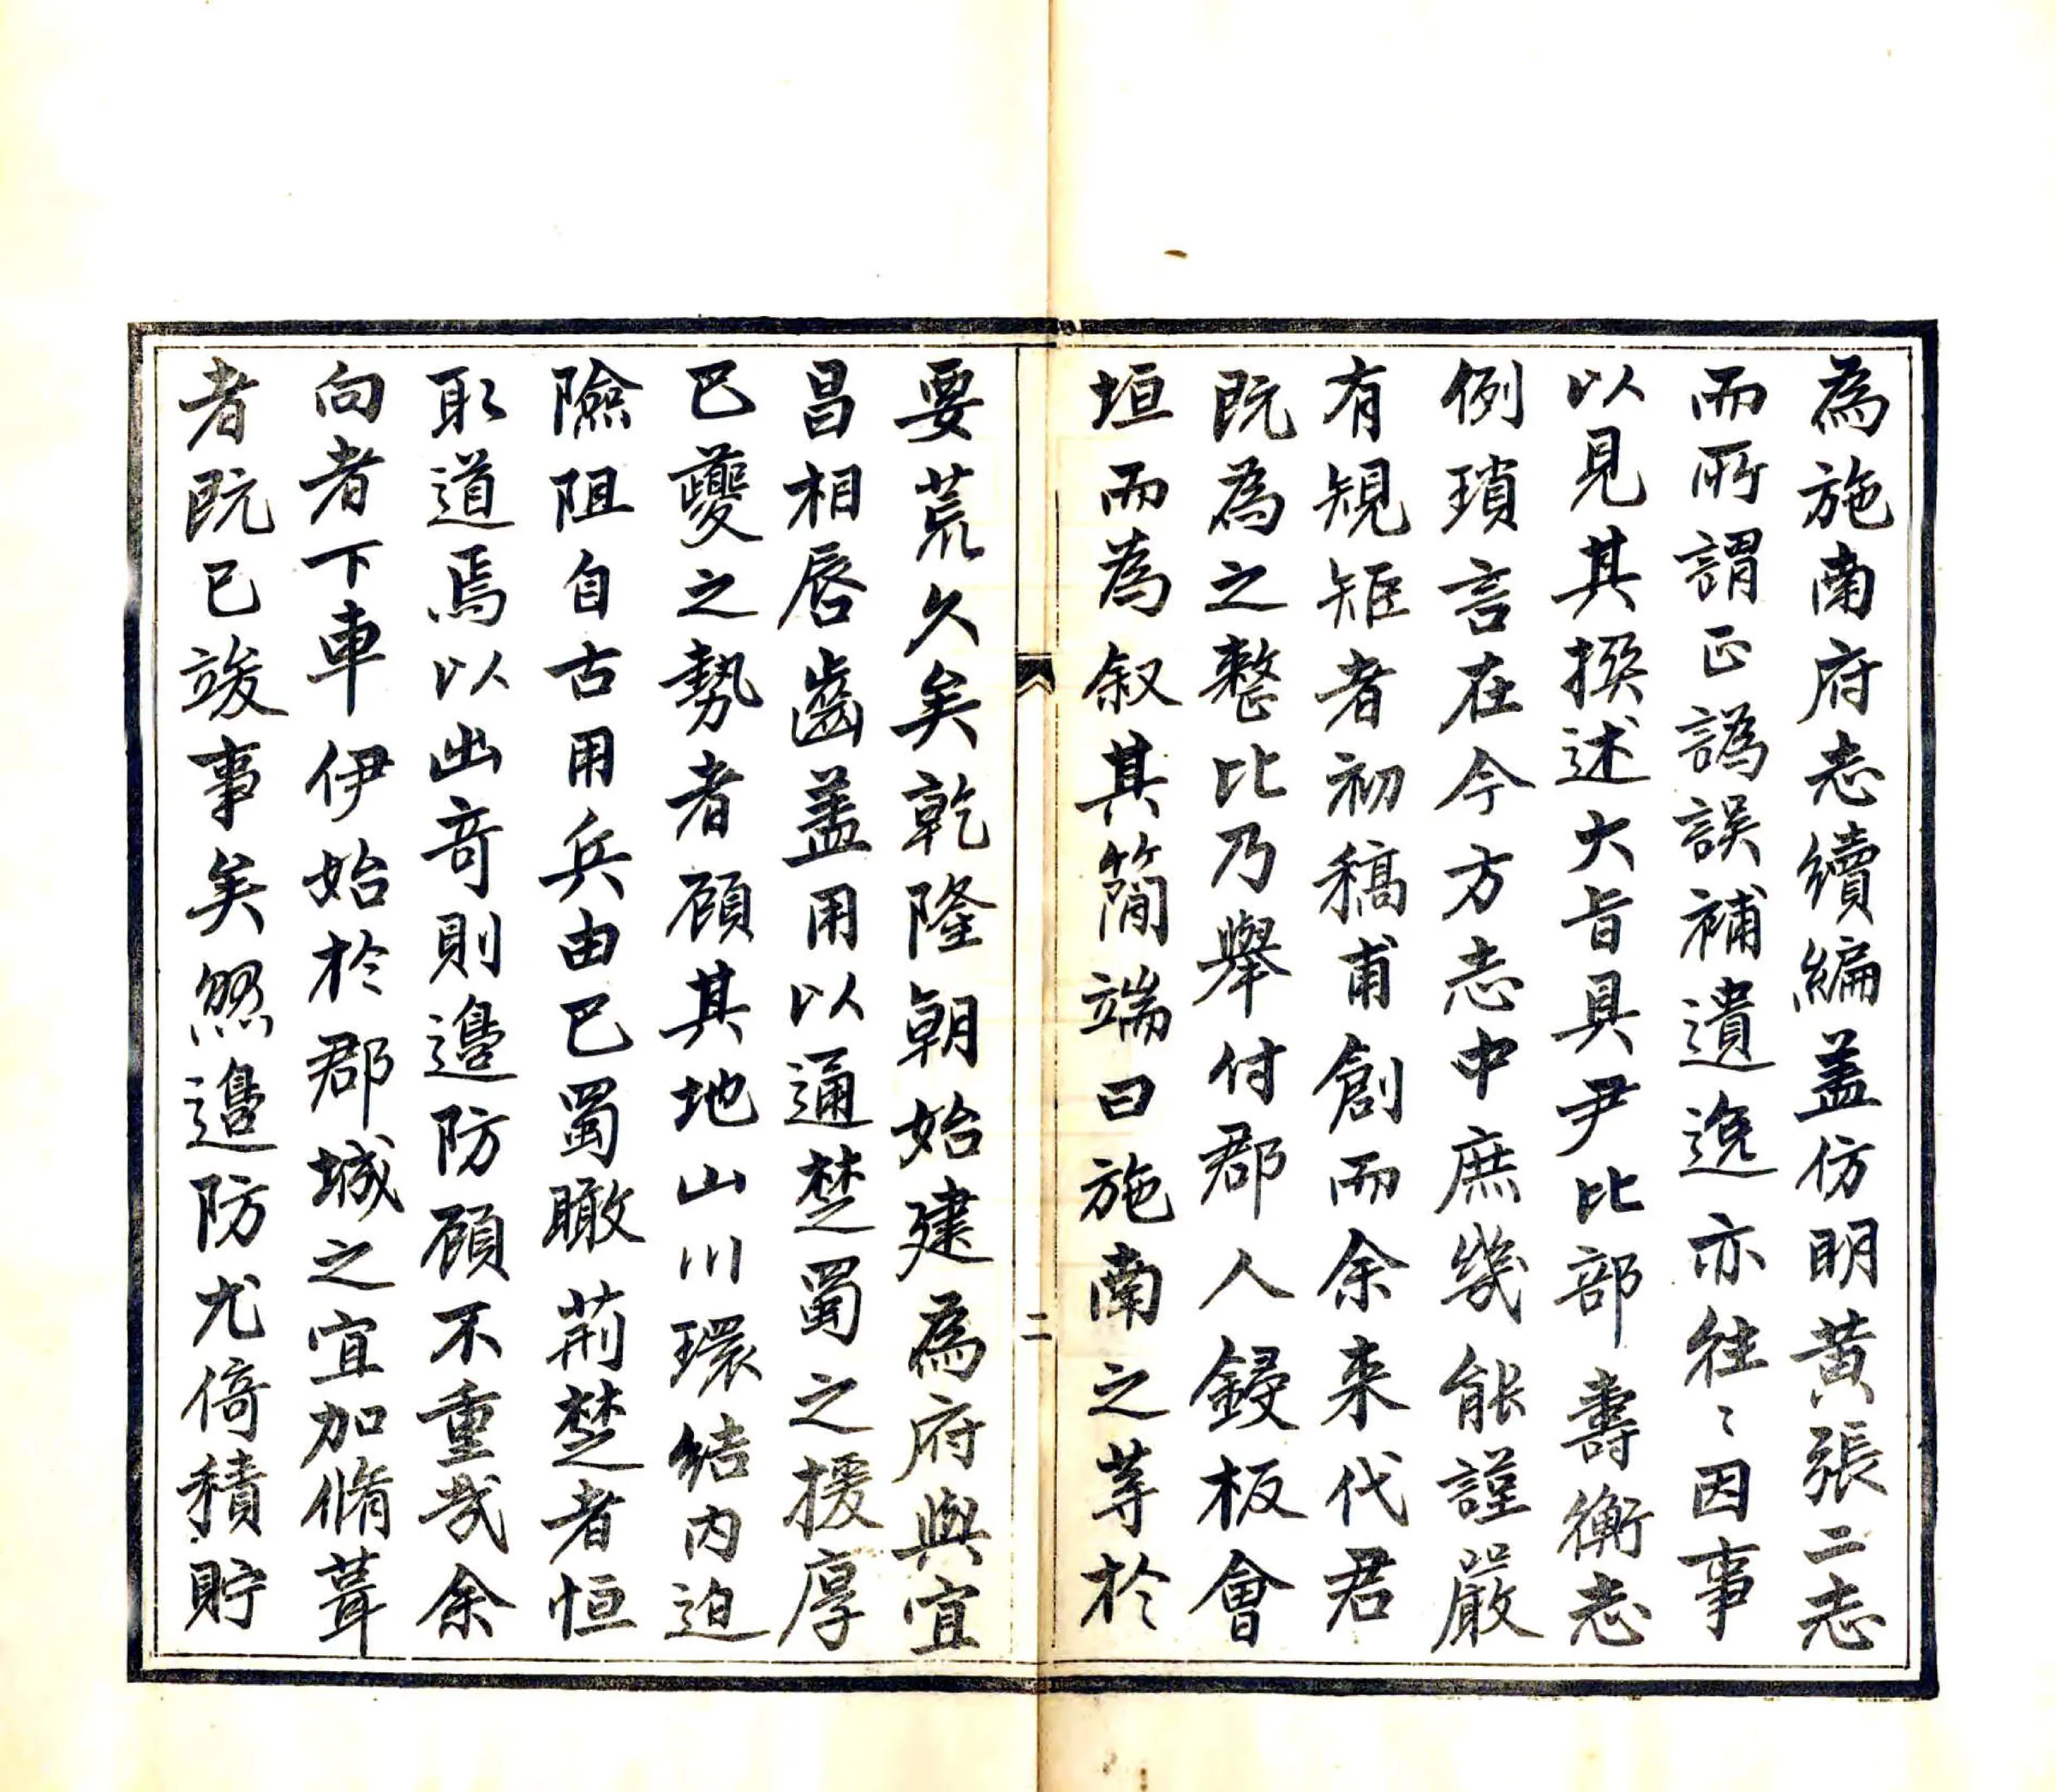 為施南府志續編盖仿明黄張二志
而所謂正譌誤補遺逸亦往〻因事
以見其撰述大旨具尹比部壽衡志
例瑣言在今方志中庶幾能謹嚴
有規矩者初稿甫創而余来代君
既為之整比乃舉付郡人鋟板會
垣而為叙其簡端曰施南之等於
二
要荒久矣乾隆朝始建為府與宜
昌相唇齒盖用以通楚蜀之援厚
巴夔之勢者顧其地山川環結内迫
險阻自古用兵由巴蜀瞰荆楚者恒
取道焉以出奇則邊防顧不重哉余
向者下車伊始於郡城之宜加脩葺
者既已竣事矣然邊防尤倚積貯